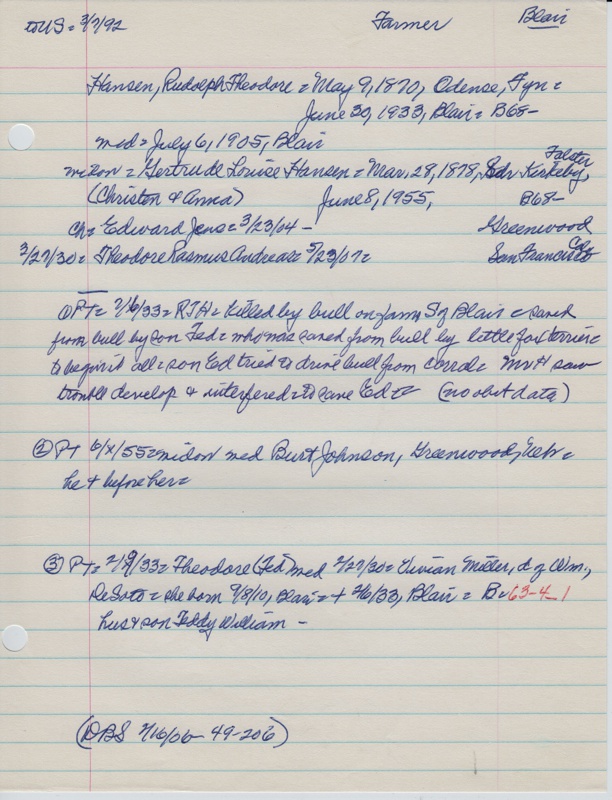 to US = 3/7/92 Farmer Blair
Hansen, Rudolph Theodore = May 9, 1870, Odense, Fyn =
June 30, 1933, Blair = B68-
med = July 6, 1905, Blair
Gertrude Louise Hansen = Mar. 28, 1878, Kirkeby, Falster
(Christen & Anna) June 8, 1955, B68-
ch = Edward Jens = 3/23/04 - Greenwood
3/27/30 = Theodore Rasmus Andreas = 5/23/07 = San Francisco
① PT = 7/6/33 = RTH = killed by bull on farm S of Blair = saved
from bull by son Ted = who was saved from bull by little fox terrier =
to begin it all = son Ed tried to drive bull from corral = Mr H saw
trouble develop & interfered = to save Ed (no obit data)
② PT 6/ /55 = widow med Burt Johnson, Greenwood, Neb =
he + before her =
③ PT = 2/9/33 = Theodore (Ted) med 2/27/30 = Vivian Miller, d of Wm.,
DeSoto = she born 9/8/10, Blair = + 2/6/33, Blair = B = 63-4-1
hus & son Teddy William -
(DBS 7/16/06 49-206)